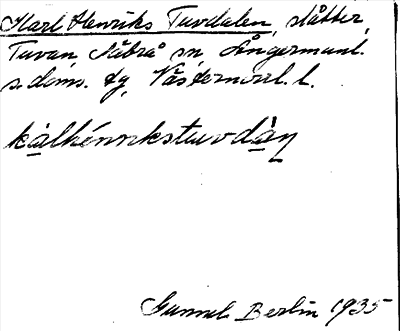 Karl Henriks Tuvdalen, slåtter,
Tuvan, Nätrå sn, Ångermanl.
s. doms. tg, Västernorrl. l.
kàlhénnrikstuvdàn
Gunnel Berlin 1935